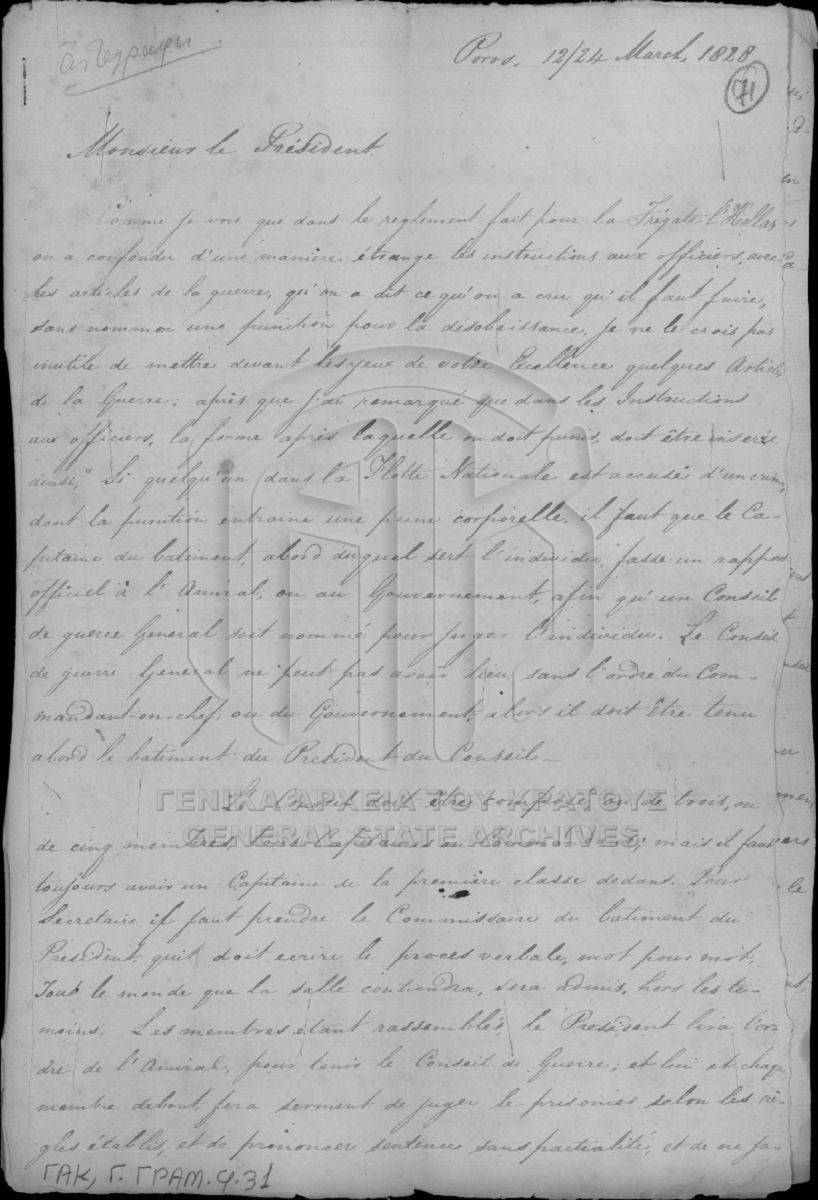 ἀντιγράφη
Poros, 12/24 March, 1828
71
Monsieur le Président
Comme je vois que dans le reglement fait pour la Frégate l'Hellas
on a confondu d'une maniere étrange les instructions aux officiers, avec
les articles de la guerre, qu'on a dit ce qu'on a cru qu'il faut faire,
sans nommer une punition pour la désobeissance, je ne le crois pas
inutile de mettre devant les yeux de votre Excellence quelques Articles
de la Guerre; après que j'ai remarqué que dans les Instructions
aux officiers, la forme après laquelle on doit punir, doit être inserée
ainsi, "Si quelqu'un dans la Flotte Nationale est accusé d'un crime,
dont la punition entraine une peine corporelle, il faut que le Ca-
pitaine du batiment, abord duquel sert l'individu, fasse un rapport
officiel à l'Amiral, ou au Gouvernement, afin qu'un Conseil
de guerre General soit nommé pour juger l'individu. Le Conseil
de guerre General ne peut pas avoir lieu sans l'ordre du Com-
mandant-en-chef, ou du Gouvernement, alors il doit être tenu
abord le batiment du President du Conseil—
Le Conseil doit être composé ou de trois, ou
de cinq membres, mais il faut
toujours avoir un Capitaine de la première classe dedans. Pour
Secretaire il faut prendre le Commissaire du batiment du
President, qui doit ecrire le proces verbale, mot pour mot.
Tout le monde que la salle contiendra, sera admis, hors les te-
moins. Les membres étant rassemblés, le President lira l'or-
dre de l'Amiral, pour tenir le Conseil de Guerre; et lui et chaque
membre debout, fera serment de juger le prisonier selon les rè-
gles établis, et de prononcer sentence sans partialité, et de ne ja-
ΓΕΝΙΚΑ ΑΡΧΕΙΑ ΤΟΥ ΚΡΑΤΟΥΣ
GENERAL STATE ARCHIVES
ΓΑΚ, Γ. ΓΡΑΜ. φ. 31